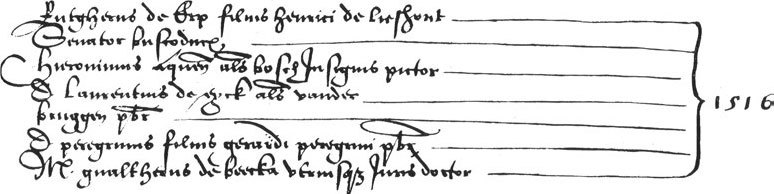 Rutgherus de Erp filius henrici de lieshout
Senator buscoducen
Hieronimus aquen als bosch Insignis pictor
D laurentius de eyck als vander
bruggen pbr
D peregrinus filius gerardi peregrini pbr
M. gualtherus de beecka utriusq Juris doctor
1516